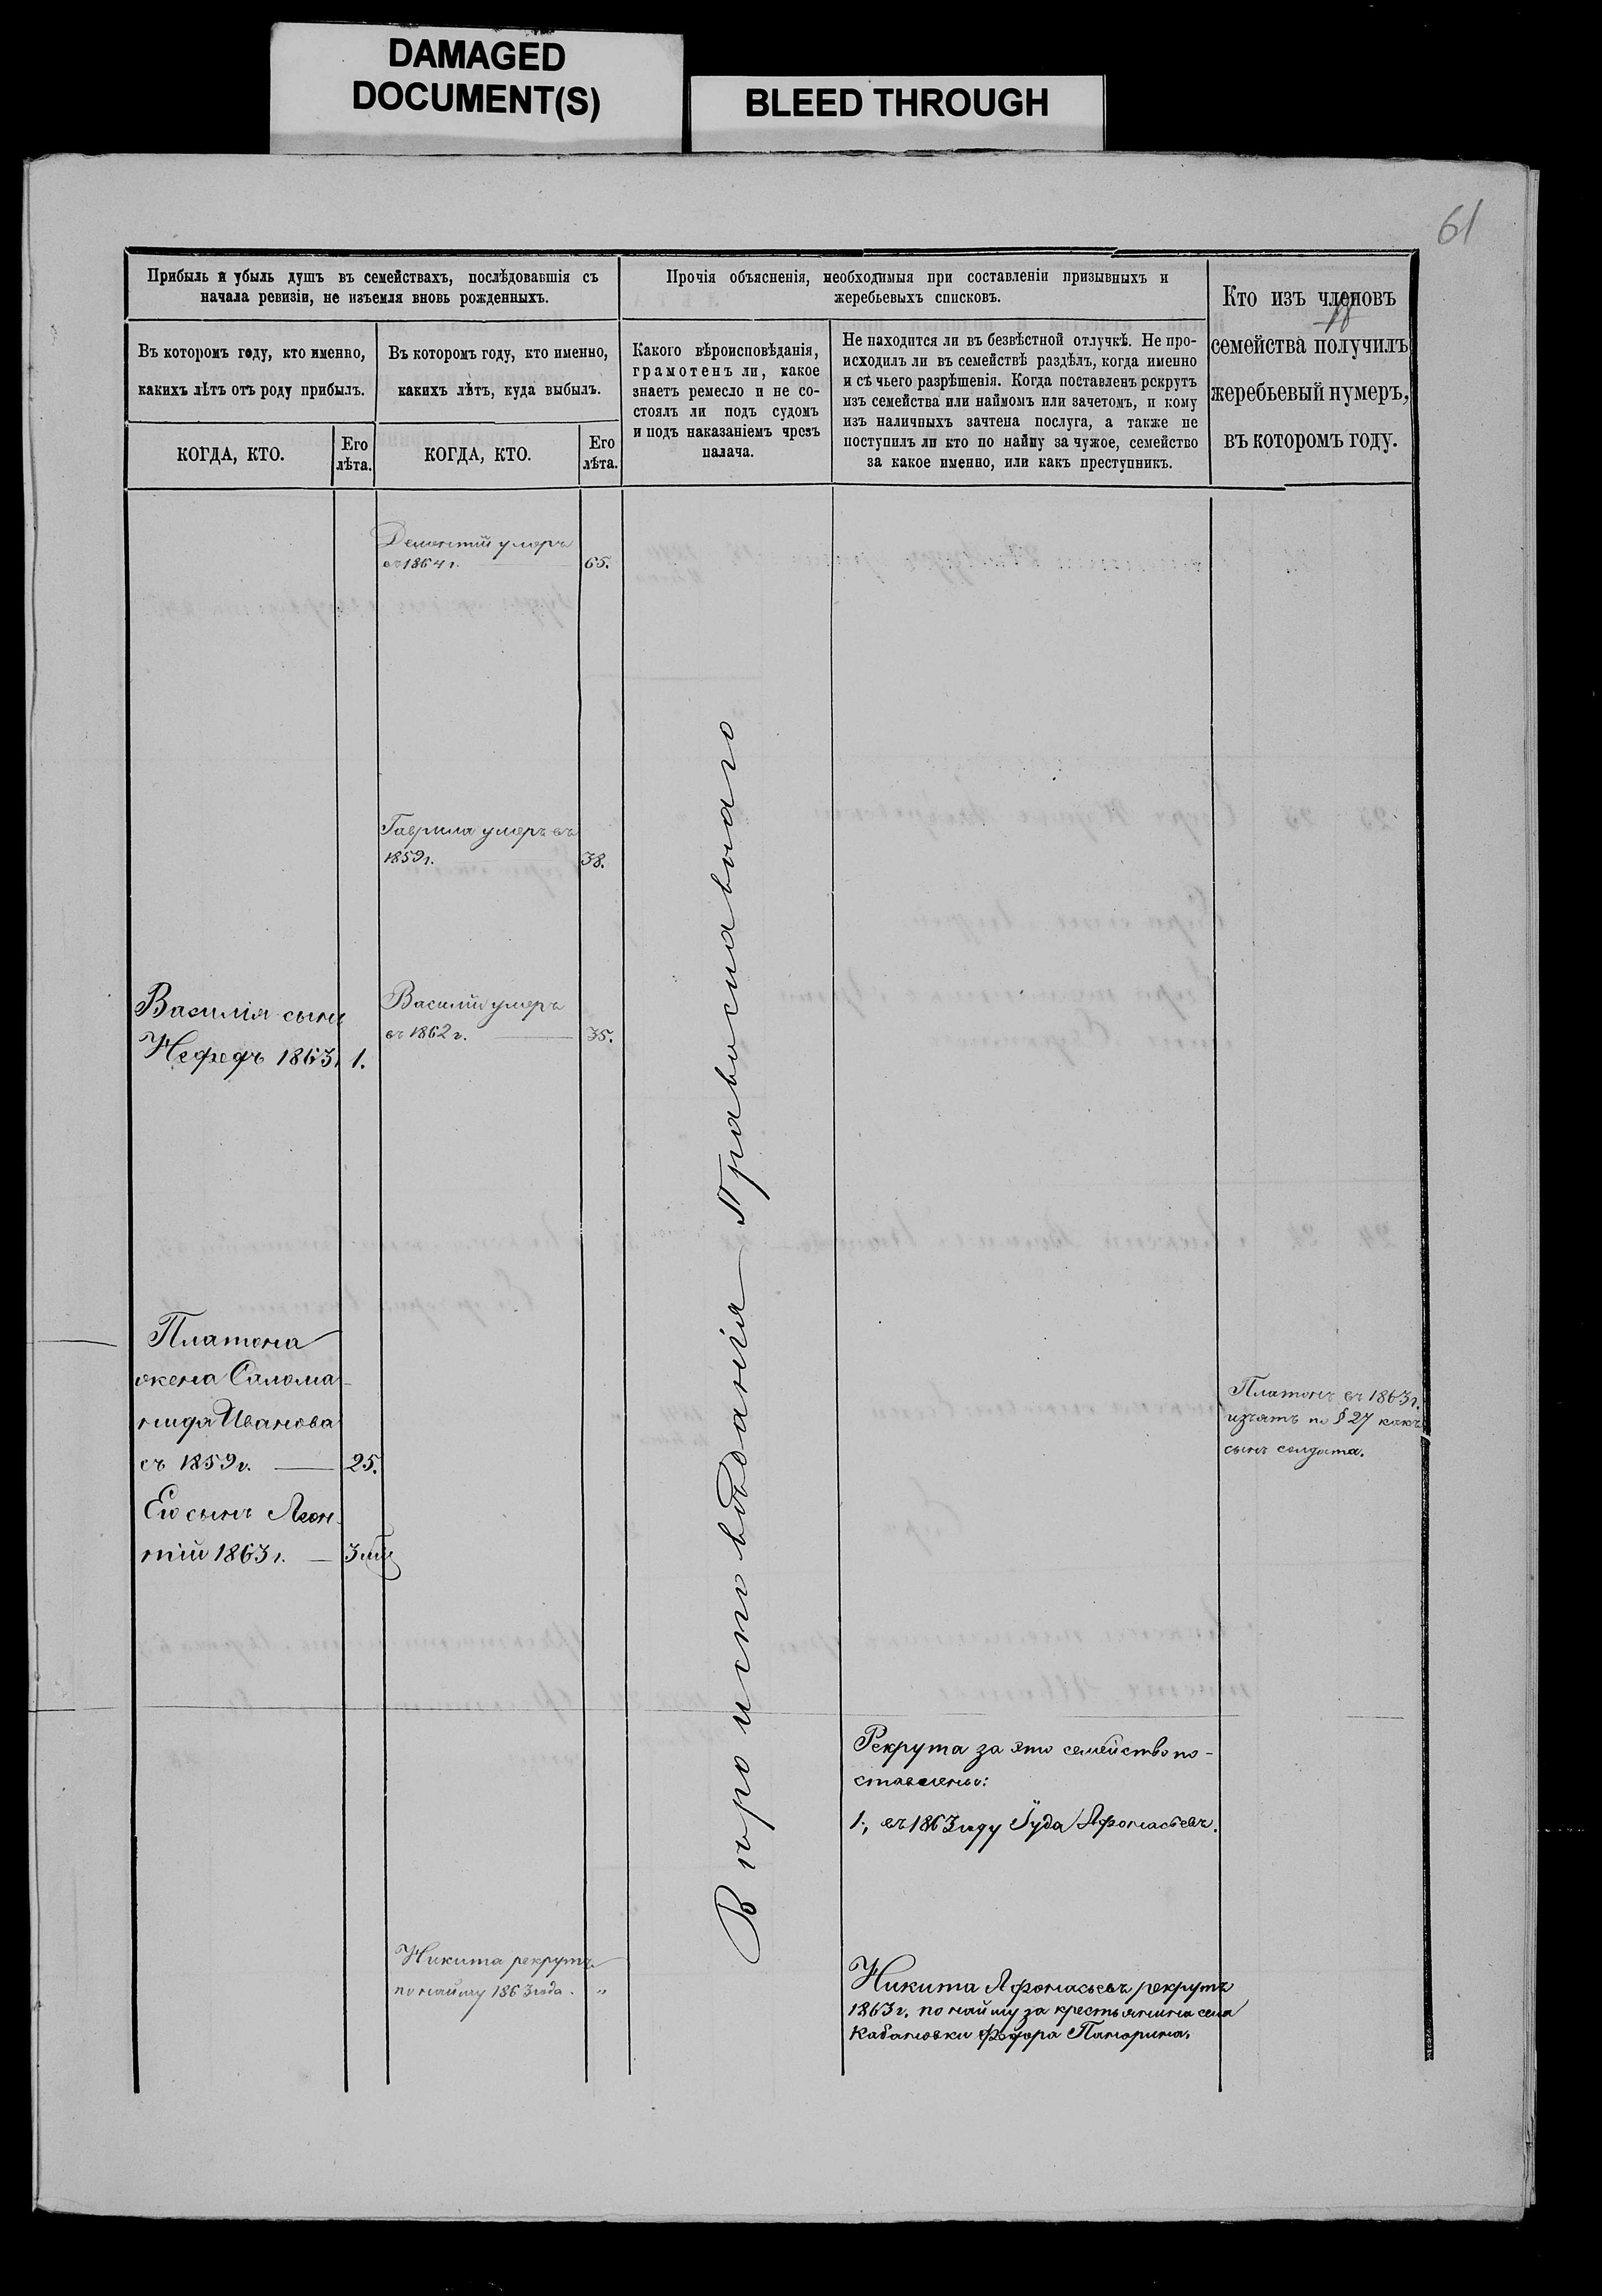 DAMAGED
DOCUMENT(S)
BLEED THROUGH
61
Прибыль и убыль душъ въ семействахъ, послѣдовавшія съ
начала ревизіи, не изъемля вновь рожденныхъ.
Въ которомъ году, кто именно,
какихъ лѣтъ отъ роду прибылъ.
КОГДА, КТО.
Его
лѣта.
Въ которомъ году, кто именно,
какихъ лѣтъ, куда выбылъ.
КОГДА, КТО.
Его
лѣта.
Прочія объясненія, необходимыя при составленіи призывныхъ и
жеребьевыхъ списковъ.
Какого вѣроисповѣданія,
грамотенъ ли, какое
знаетъ ремесло и не со-
стоялъ ли подъ судомъ
и подъ наказаніемъ чрезъ
палача.
Не находится ли въ безвѣстной отлучкѣ. Не про-
исходилъ ли въ семействѣ раздѣлъ, когда именно
и съ чьего разрѣшенія. Когда поставленъ рекрутъ
изъ семейства или наймомъ или зачетомъ, и кому
изъ наличныхъ зачтена послуга, а также не
поступилъ ли кто по найму за чужое, семейство
за какое именно, или какъ преступникъ.
Кто изъ членовъ
семейства получилъ
жеребьевый нумеръ,
въ которомъ году.
Дементій умеръ
въ 1864 г. 65.
Гаврила умеръ въ
1859 г. 38.
Василія сынъ
Нефедъ 1863 1.
Василій умеръ
въ 1862 г. 35.
Вѣроисповѣданія Православнаго
Платона
жена Салома-
нида Иванова
съ 1859 г. 25.
Ею сынъ Леон-
тій 1863 г. 3
Платонъ въ 1863 г.
изъятъ по § 27 какъ
сынъ солдата.
Рекрута за это семейство по-
ставлены:
1., въ 1863 году Іуда Афонасьевъ.
Никита рекрутъ
по найму 1863 года. "
Никита Афонасьевъ рекрутъ
1863 г. по найму за крестьянина села
Кабановки